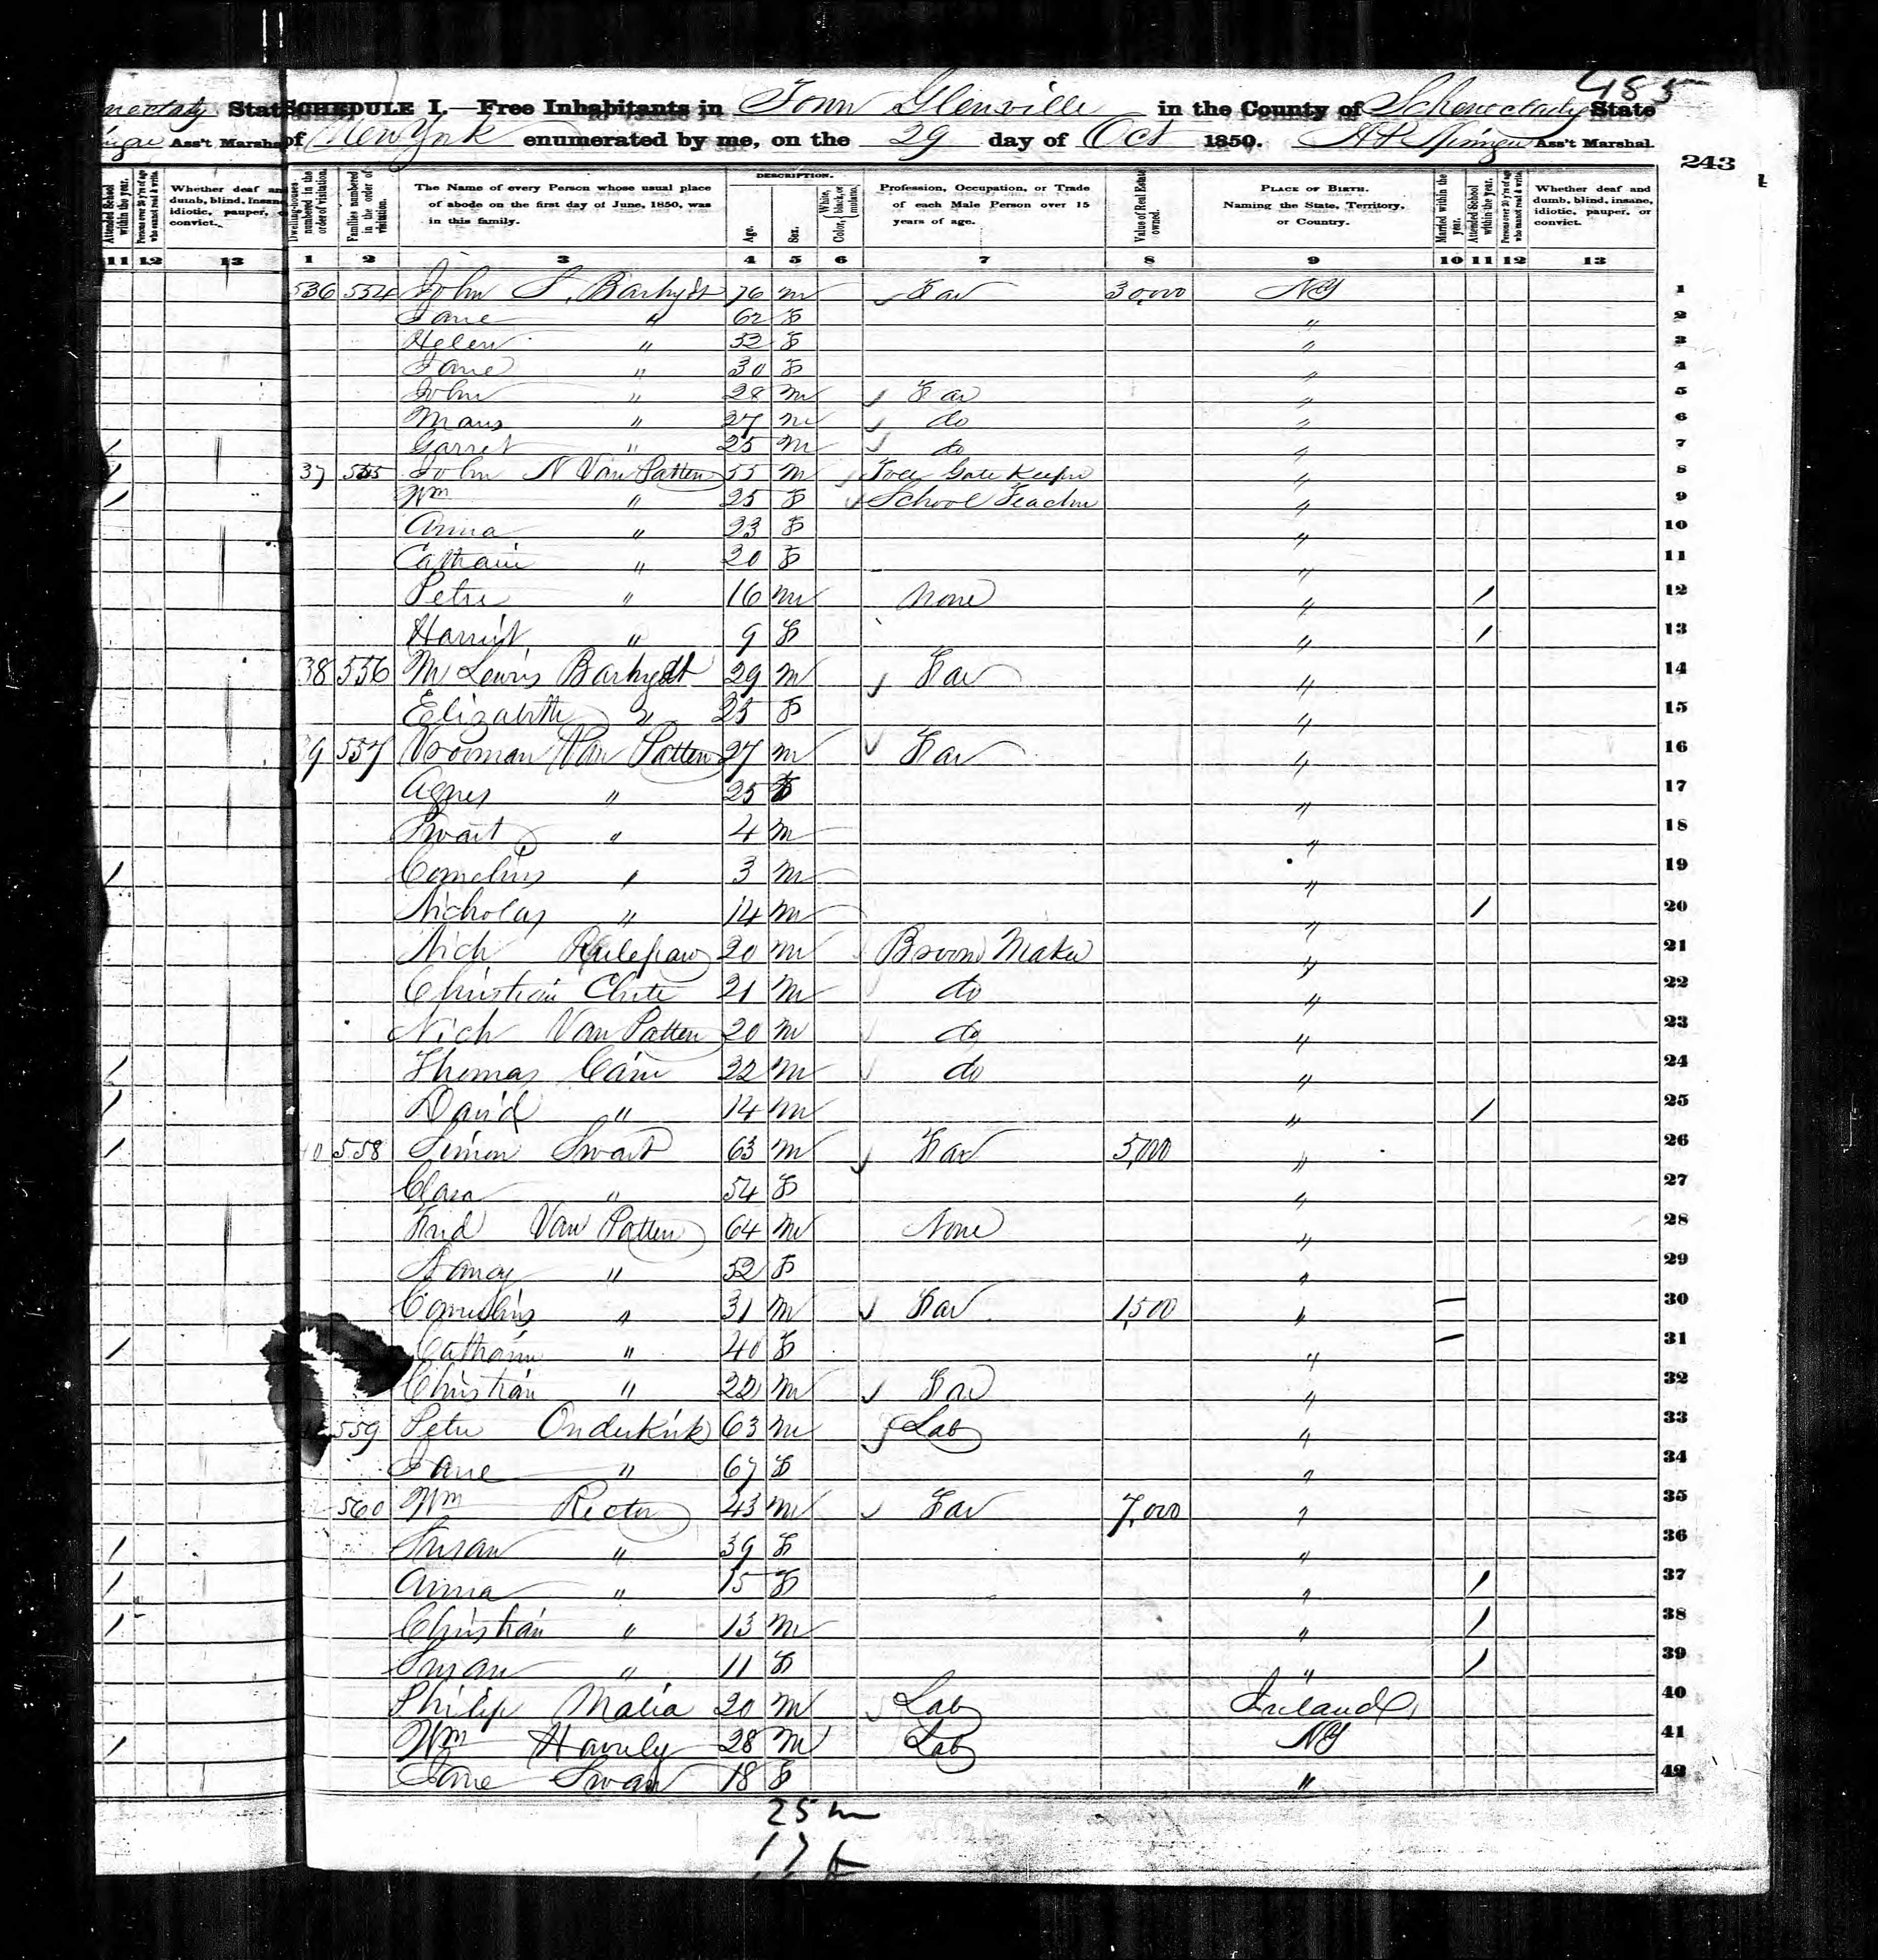 485
SCHEDULE I.—Free Inhabitants in Town Glenville in the County of Schenectady State
of New York enumerated by me, on the 29 day of Oct 1850. Ass't Marshal.
243
nectady Stat
Ass't Marsha
Attended School within the year.
Persons over 20 y'rs of age who cannot read & write.
Whether deaf and dumb, blind, insane, idiotic, pauper, or convict.
Dwelling-houses numbered in the order of visitation.
Families numbered in the order of visitation.
The Name of every Person whose usual place of abode on the first day of June, 1850, was in this family.
DESCRIPTION.
Age.
Sex.
Color, White, black, or mulatto.
Profession, Occupation, or Trade of each Male Person over 15 years of age.
Value of Real Estate owned.
PLACE OF BIRTH. Naming the State, Territory, or Country.
Married within the year.
Attended School within the year.
Persons over 20 y'rs of age who cannot read & write.
Whether deaf and dumb, blind, insane, idiotic, pauper, or convict.
11 12 13 1 2 3 4 5 6 7 8 9 10 11 12 13
536 554 John S. Barhydt 76 m Far 30,000 NY 1
Jane " 62 F " 2
Helen " 32 F " 3
Jane " 30 F " 4
John " 28 m Far " 5
Maus " 27 m do " 6
Garret " 25 m do " 7
37 555 John N Van Patten 55 m Gate Keeper " 8
Wm " 25 F School Teacher " 9
Anna " 23 F " 10
Catharine " 20 F " 11
Peter " 16 m None " / 12
Harriet " 9 F " / 13
38 556 M Lewis Barhydt 29 m Far " 14
Elizabeth " 25 F " 15
39 557 Vrooman Van Patten 27 m Far " 16
Agnes " 25 F " 17
Swart " 4 m " 18
Cornelius " 3 m " 19
Nicholas " 14 m " / 20
Nich 20 m Broom Maker " 21
Christian Clute 21 m do " 22
Nich Van Patten 20 m do " 23
Thomas Cain 22 m do " 24
David " 14 m " / 25
40 558 Simon Swart 63 m Far 5,000 " 26
Clara " 54 F " 27
Fred Van Patten 64 m None " 28
Nancy " 52 F " 29
Cornelius " 31 m Far 1,500 " / 30
Catharine " 40 F " / 31
Christian " 22 m Far " 32
559 Peter Onderkirk 63 m Lab " 33
Jane " 67 F " 34
560 Wm Rector 43 m Far 7,000 " 35
Susan " 39 F " 36
Anna " 15 F " / 37
Christian " 13 m " / 38
Susan " 11 F " / 39
Philip Malia 20 m Lab Ireland 40
Wm 28 m Lab NY 41
Jane Swan 18 F " 42
25 m
17 f